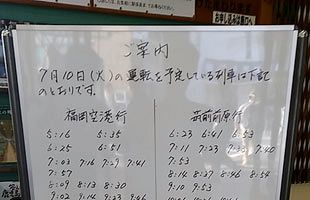 ご案内
7月10日(火)の運転を予定している列車は下記
のとおりです。
福岡空港行
5:16 5:35
6:25 6:51
7:03 7:16 7:29 7:41
7:57
8:09 8:13 8:30
9:02 9:14 9:33 9:46
筑前前原行
6:23 6:41 6:53
7:11 7:23 7:30 7:40
7:53
8:14 8:27 8:46 8:54
9:10 9:53